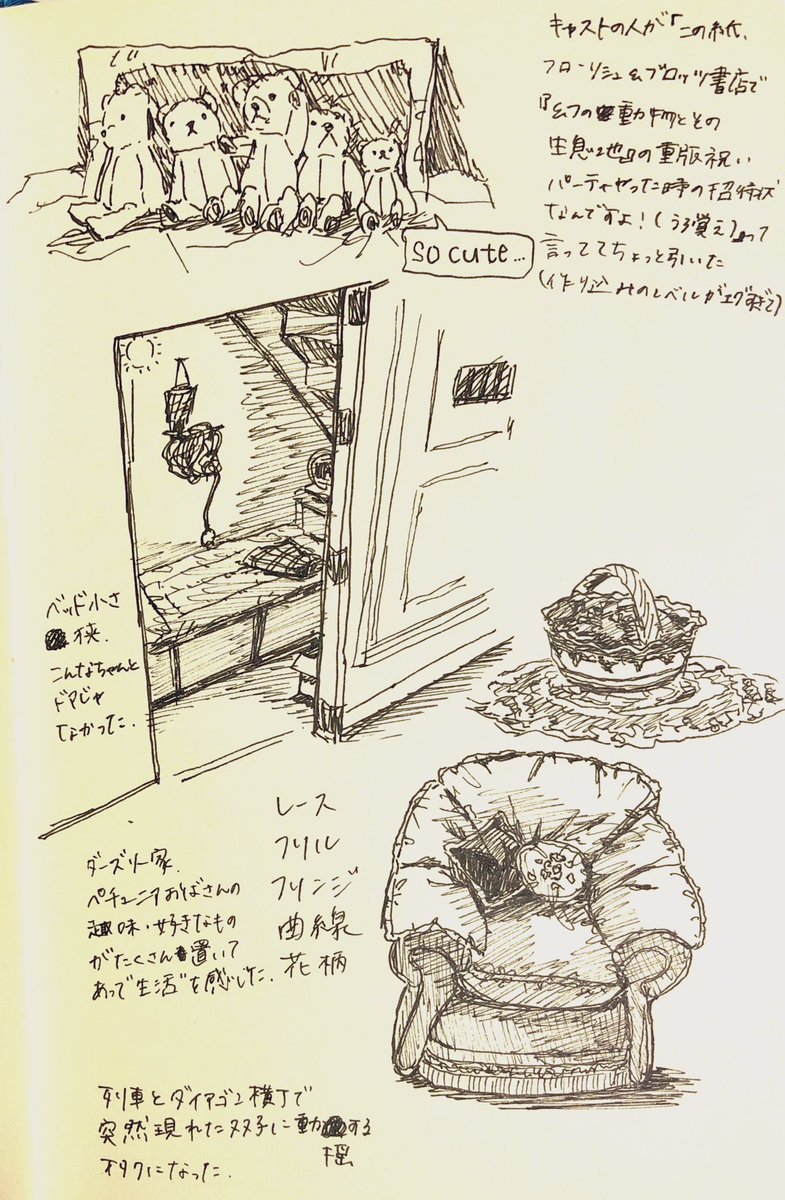 キャストの人が「この紙、
フローリシュ&ブロッツ書店で
『幻の動物とその
生息地』の重版祝い
パーティやった時の招待状
なんですよ!(うろ覚え)」って
言っててちょっと引いた
(作り込みのレベルがエグすぎて)
so cute...
ベッド小さ
狭.
こんなちゃんと
ドアじゃ
なかった.
レース
フリル
フリンジ
曲線
花柄
ダーズリー家.
ペチュニアおばさんの
趣味・好きなもの
がたくさん置いて
あって"生活"を感じた.
列車とダイアゴン横丁で
突然現れた双子に動揺する
オタクになった.